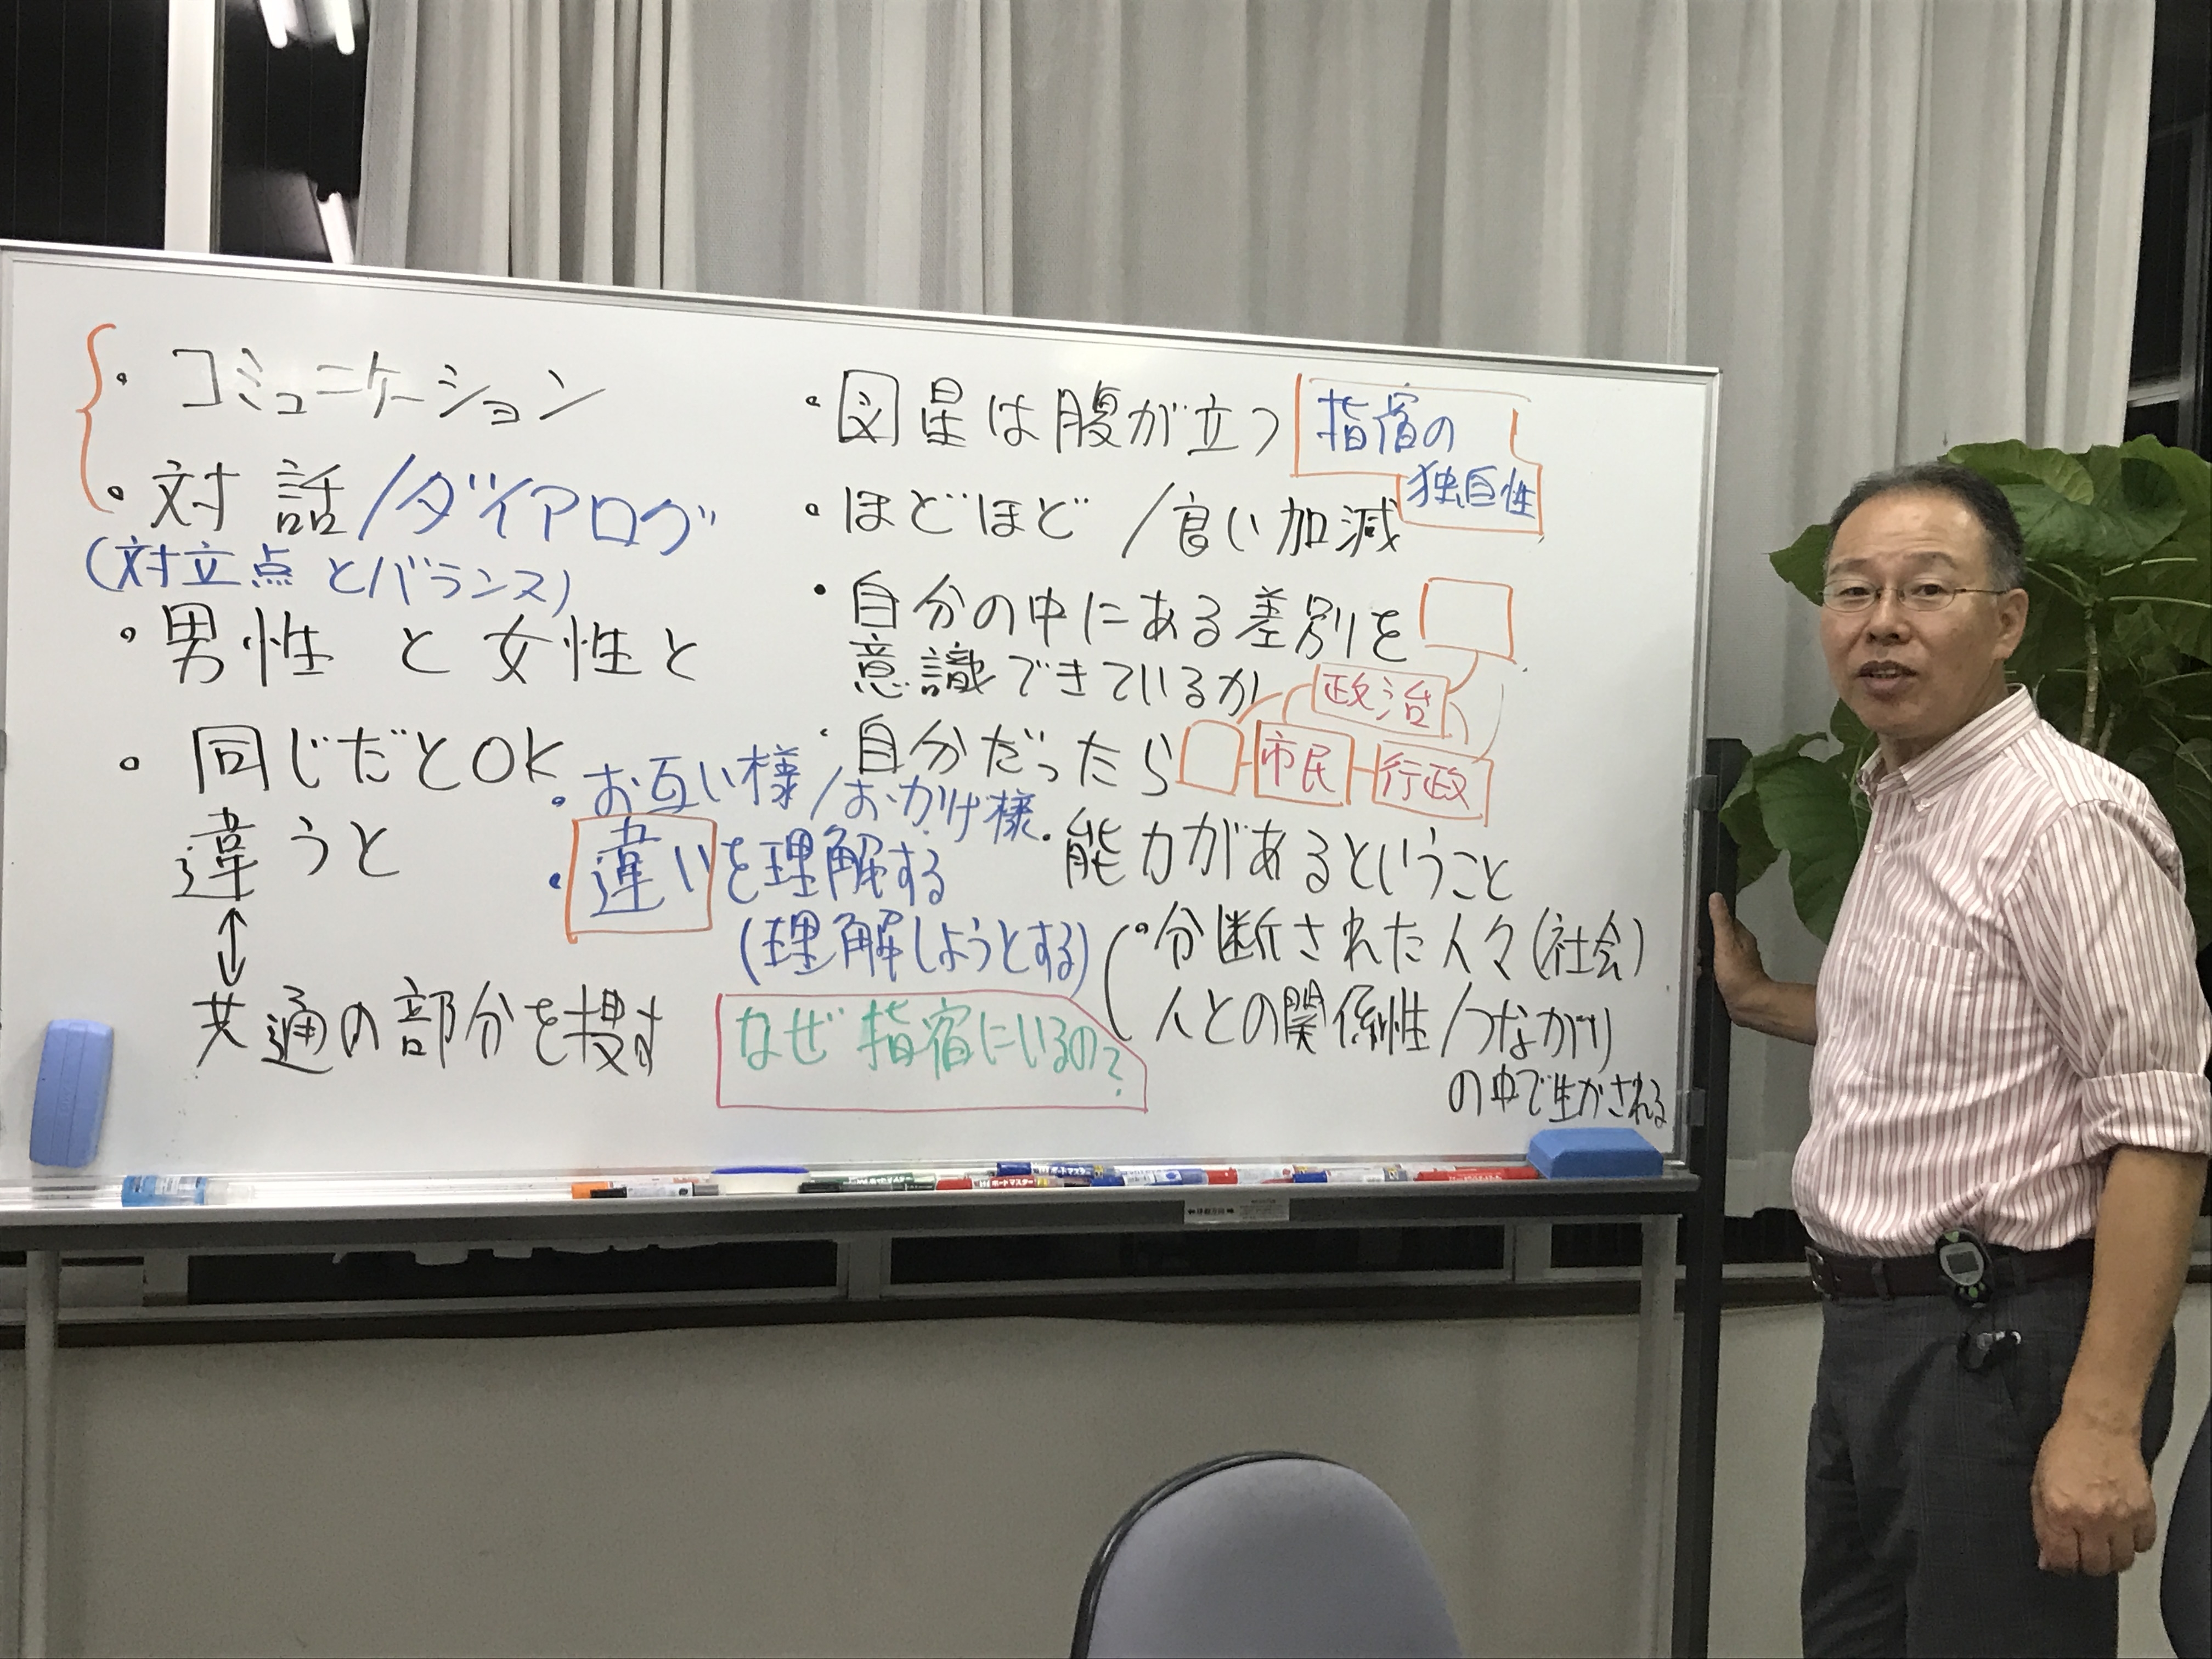 ・コミュニケーション
・対話/ダイアログ
(対立点とバランス)
・男性と女性と
・同じだとOK
違うと
↕
共通の部分を捜す
・お互い様/おかげ様
・違いを理解する
(理解しようとする)
なぜ指宿にいるの?
・図星は腹が立つ
指宿の
独自性
・ほどほど/良い加減
・自分の中にある差別を
意識できているか
・自分だったら
政治
市民
行政
・能力があるということ
・分断された人々(社会)
人との関係性/つながり
の中で生かされる